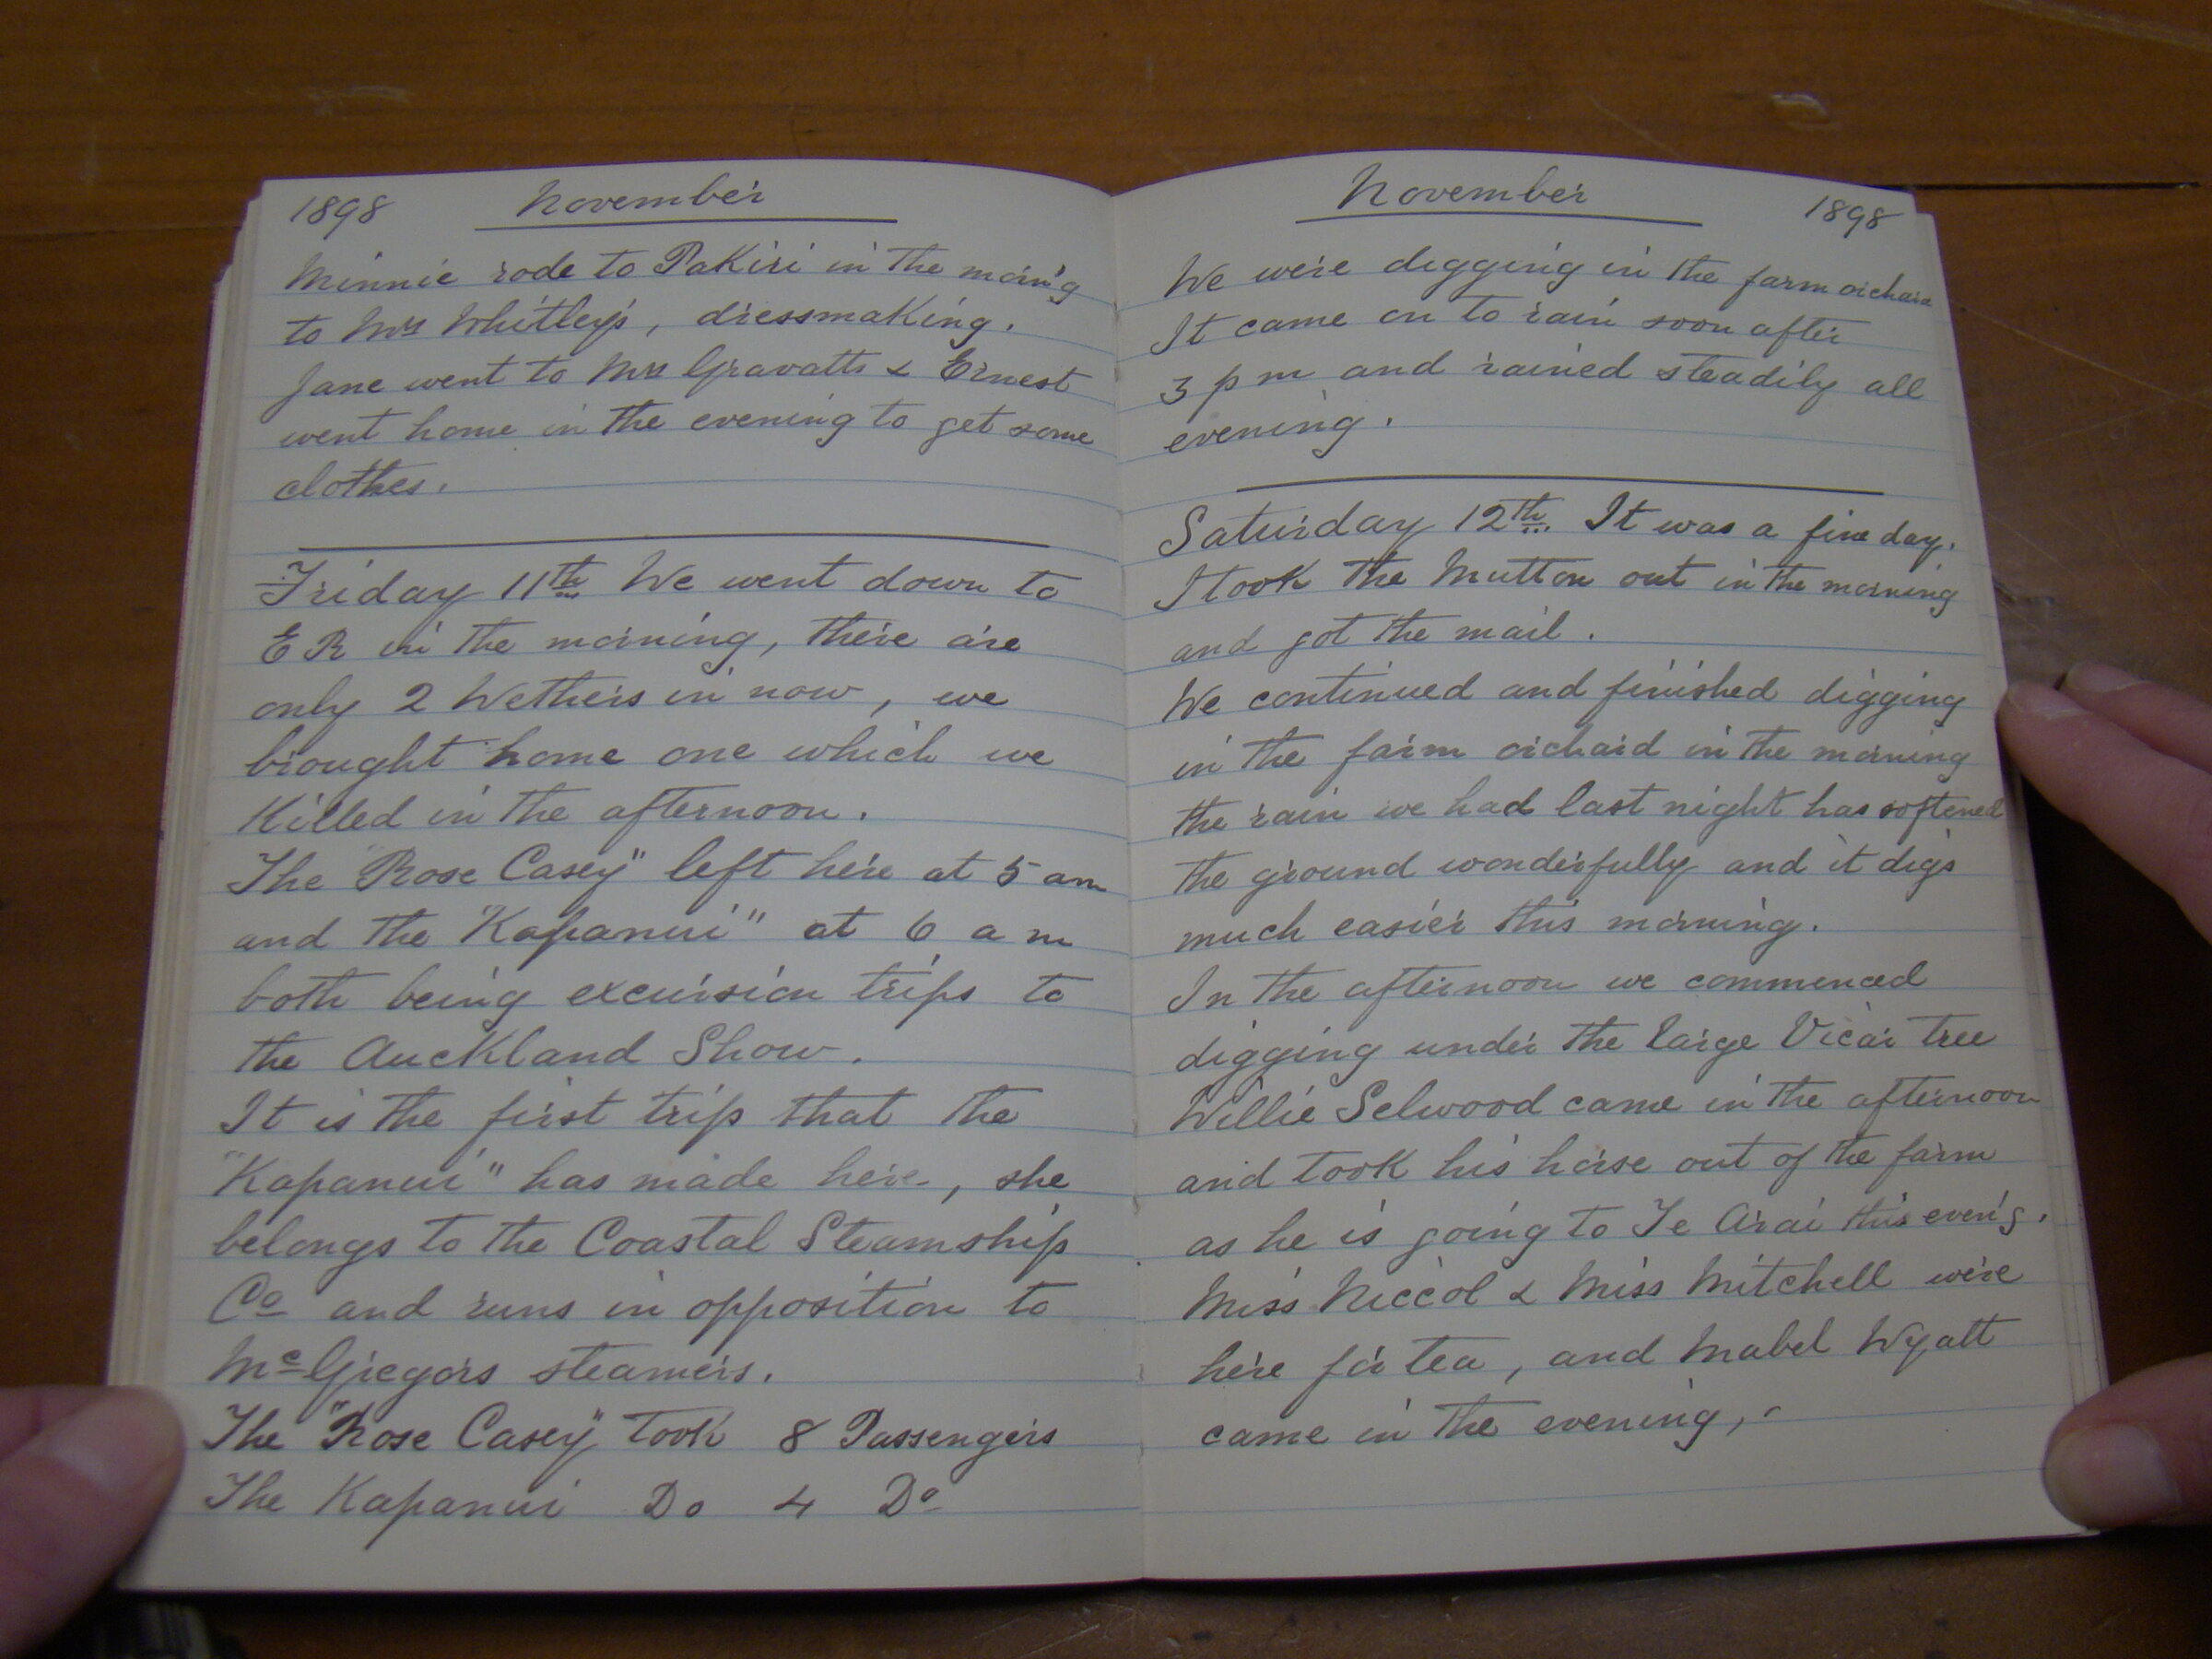 1898 November
Minnie rode to Pakiri in the morn'g
to Mrs Whitley's, dressmaking.
Jane went to Mrs Gravatts & Ernest
went home in the evening to get some
clothes.
Friday 11th We went down to
E R in the morning, there are
only 2 Wethers in now, we
brought home one which we
Killed in the afternoon.
The "Rose Casey" left here at 5 am
and the "Kapanui" at 6 a m
both being excursion trips to
the Auckland Show.
It is the first trip that the
"Kapanui" has made here, she
belongs to the Coastal Steamship
Co and runs in opposition to
McGregors steamers.
The "Rose Casey" took 8 Passengers
The Kapanui Do 4 Do
November 1898
We were digging in the farm orchard
It came on to rain soon after
3 p m and rained steadily all
evening.
Saturday 12th. It was a fine day.
I took the Mutton out in the morning
and got the mail.
We continued and finished digging
in the farm orchard in the morning
the rain we had last night has softened
the ground wonderfully and it digs
much easier this morning.
In the afternoon we commenced
digging under the large Vicar tree
Willie Selwood came in the afternoon
and took his horse out of the farm
as he is going to Te Arai this even'g.
Miss Niccol & Miss Mitchell were
here for tea, and Mabel Wyatt
came in the evening,